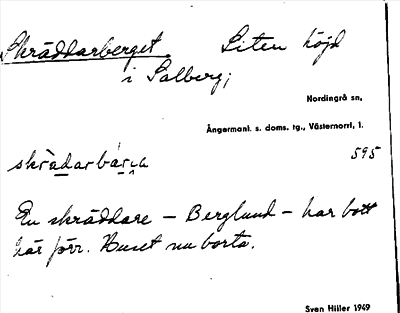 Skräddarberget Liten höjd
i Salberg;
Nordingrå sn,
Ångermanl. s. doms. tg., Västernorrl, l.
skrädarbárja 595
En skräddare – Berglund – har bott
här förr. Huset nu borta.
Sven Hiller 1949